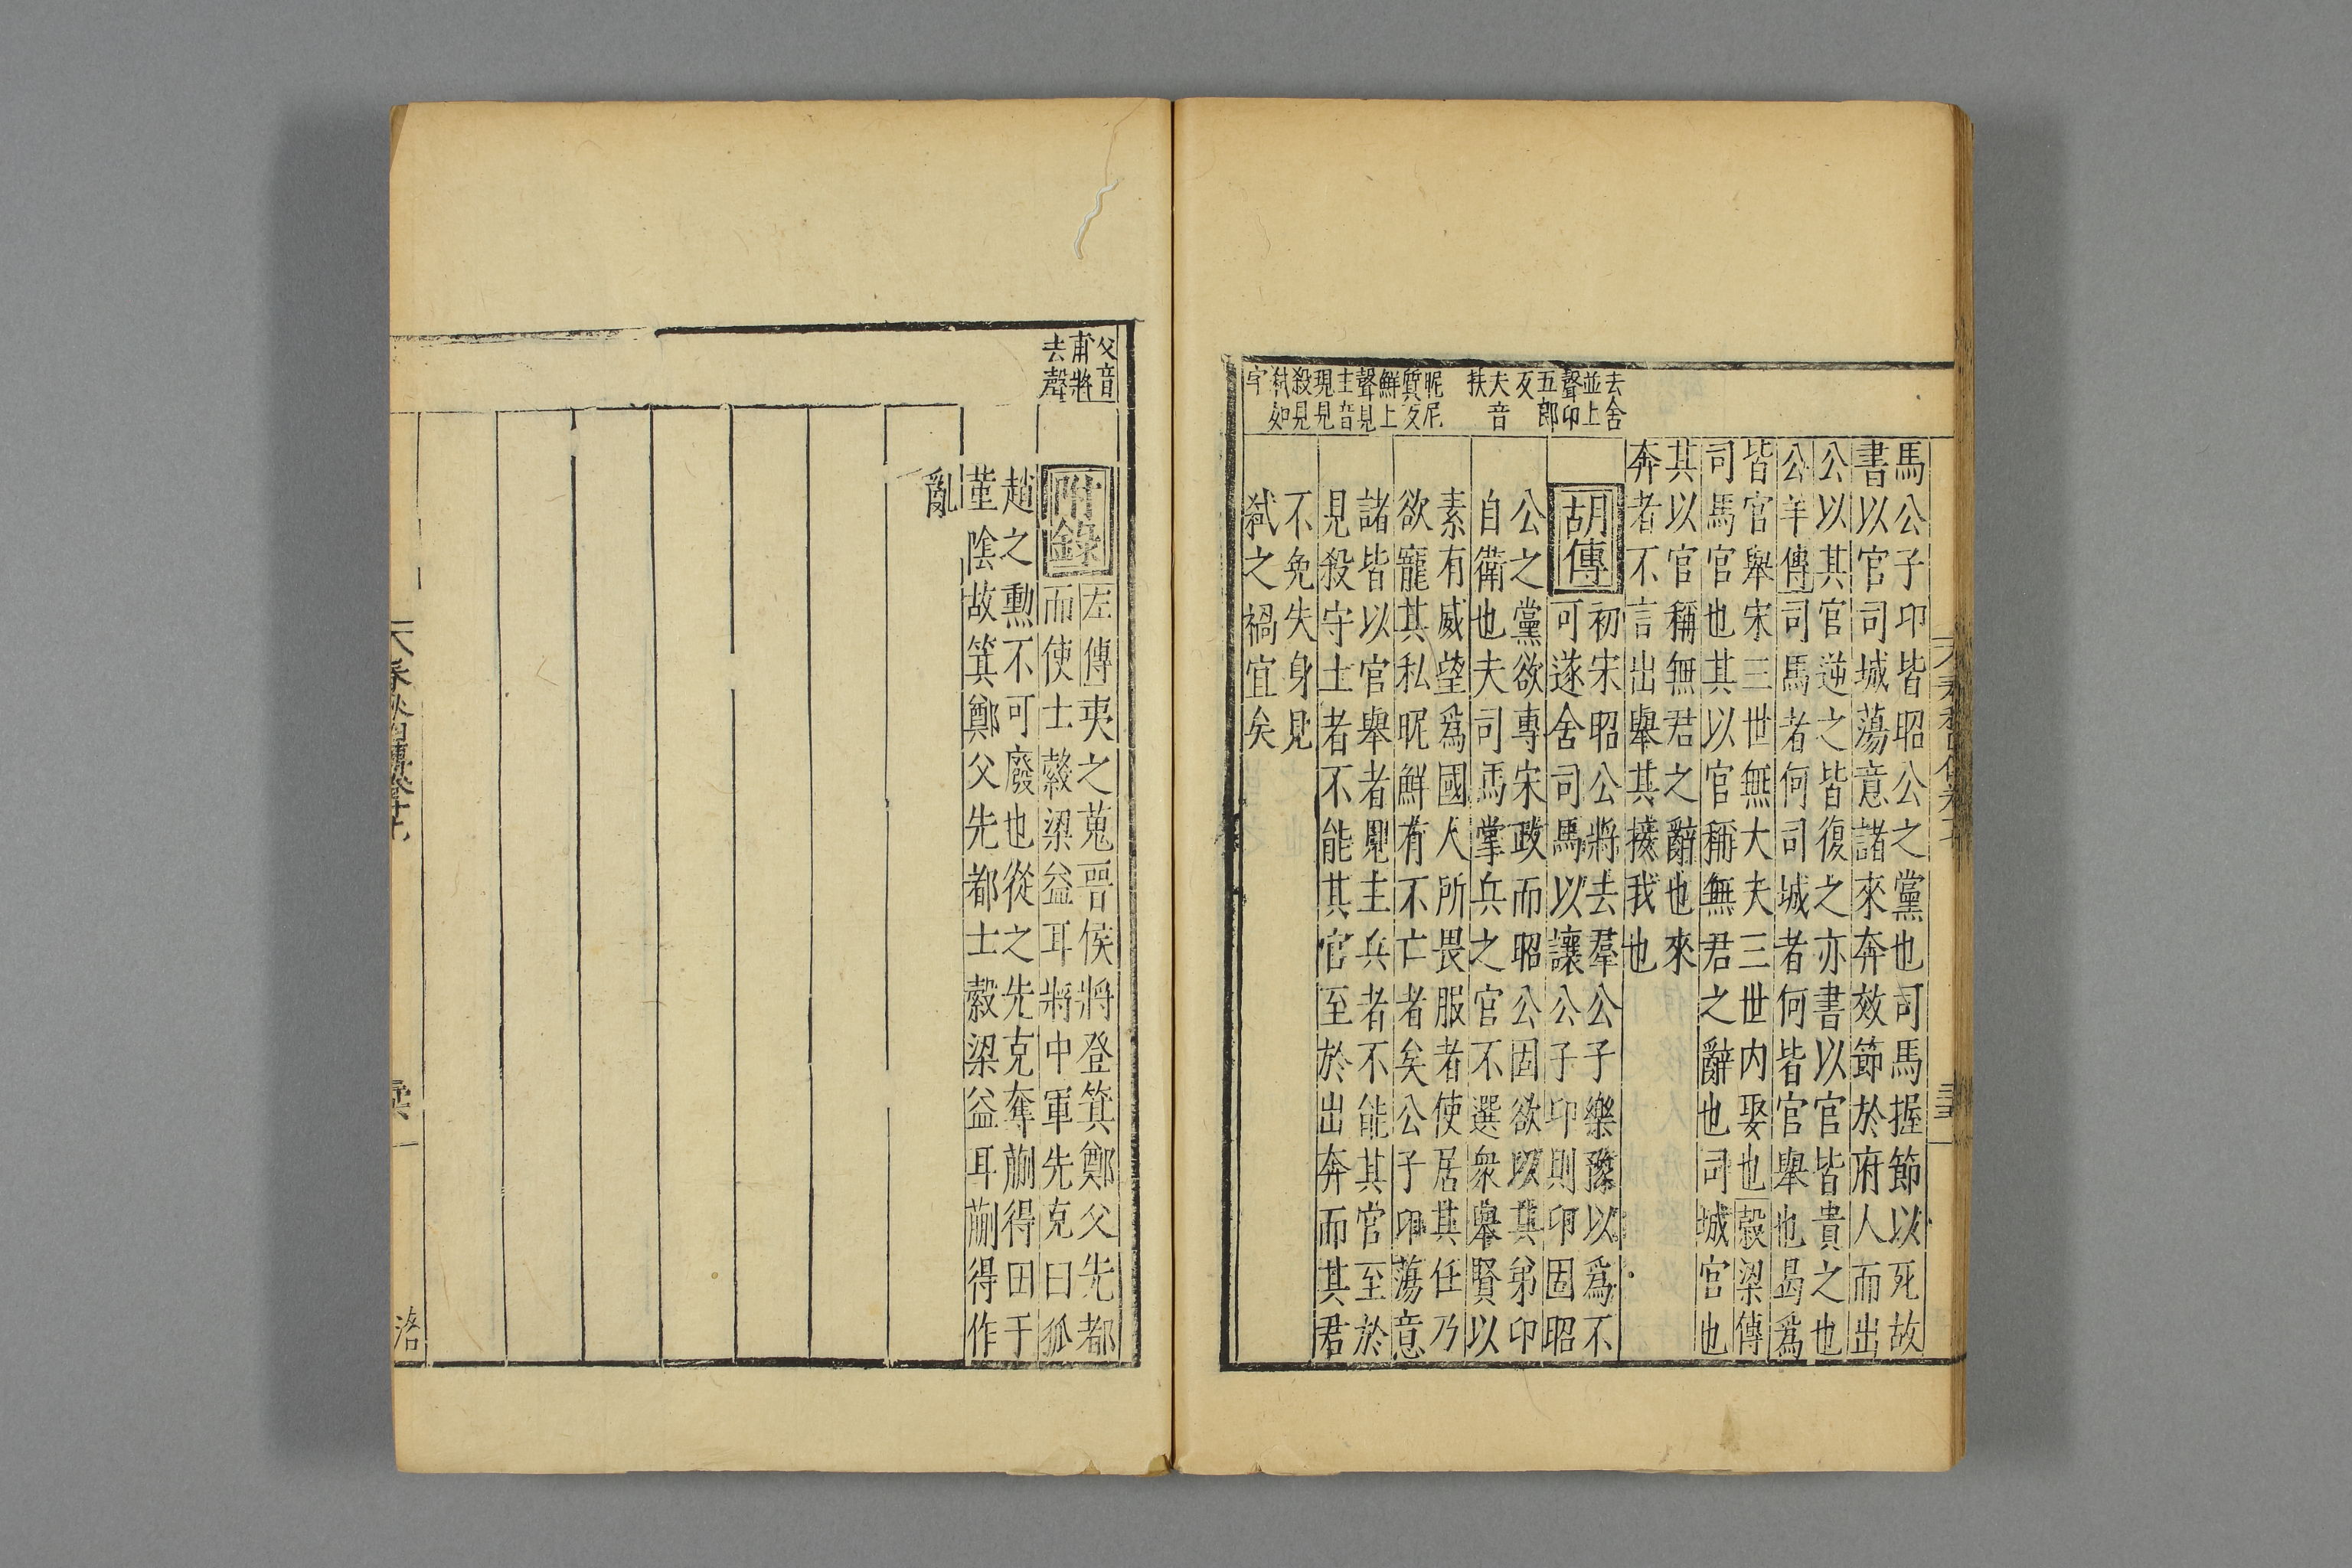 去舍
並上
聲卬
五郎
反
夫音
扶
昵尼
質反
鮮上
聲見
主音
現見
殺見
弑如
字
馬公子卬皆昭公之黨也司馬握節以死故
書以官司城蕩意諸來奔效節於府人而出
公以其官逆之皆復之亦書以官皆貴之也
公羊傳司馬者何司城者何皆官舉也曷爲
皆官舉宋三世無大夫三世内娶也穀梁傳
司馬官也其以官稱無君之辭也司城官也
其以官稱無君之辭也來
奔者不言出舉其接我也
胡傳
初宋昭公將去羣公子樂豫以爲不
可遂舍司馬以讓公子卬則卬固昭
公之黨欲專宋政而昭公固欲以其弟卬
自衛也夫司馬掌兵之官不選衆舉賢以
素有威望爲國人所畏服者使居其任乃
欲寵其私昵鮮有不亡者矣公子卬蕩意
諸皆以官舉者見主兵者不能其官至於
見殺守土者不能其官至於出奔而其君
不免失身見
弑之禍宜矣
父音
甫將
去聲
附錄
左傳夷之蒐晉侯將登箕鄭父先都
而使士縠梁益耳將中軍先克曰狐
趙之勲不可廢也從之先克奪蒯得田于
堇陰故箕鄭父先都士縠梁益耳蒯得作
亂
洛